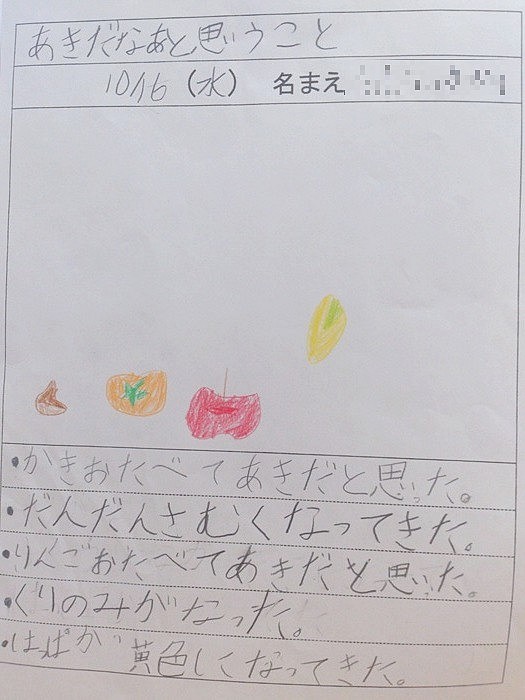 あきだなあと思うこと
10/16（水） 名まえ
・かきおたべてあきだと思った。
・だんだんさむくなってきた。
・りんごおたべてあきだと思った。
・くりのみがなった。
・はっぱが黄色しくなってきた。